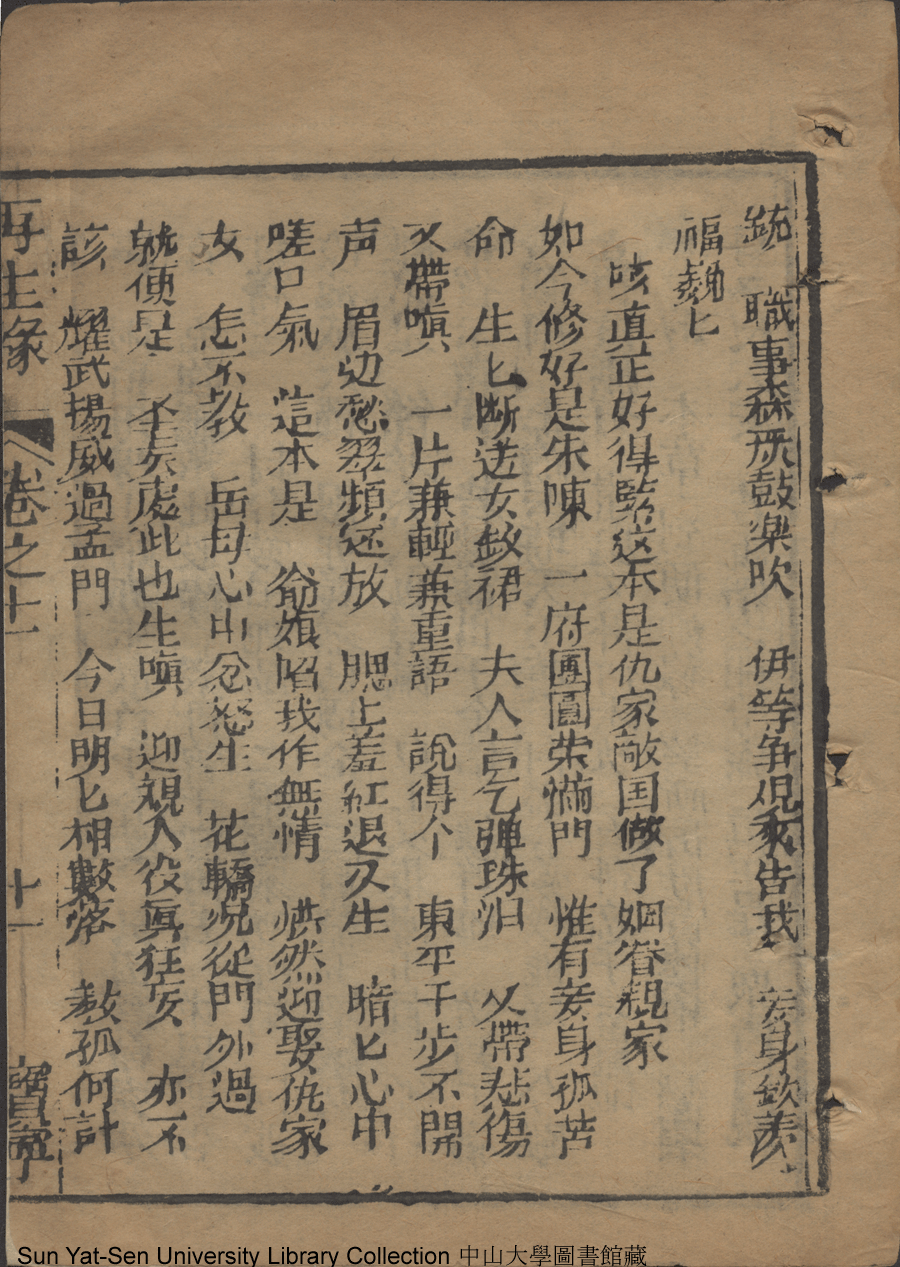 銃　職事森羅鼓楽吹　伊等争先来告我　妾身欽羨
福魏匕
咳直正好得緊这本是仇家敵国做了姻眷親家
如今修好是朱陳　一府團圓荣滿門　惟有妾身孤苦
命　生匕断送女釵裙　夫人言乞弹珠泪　又帶悲傷
又帶嗔　一片兼輕兼重語　說得个　東平千步不開
声　眉边愁翠頻还放　腮上羞紅退又生　暗匕心中
嗟口氣　這本是　爺娘陷我作無情　恍然迎娶仇家
女　怎不教　岳母心中忿怒生　花轎況從門外過
就便是　本奌處此也生嗔　迎親人役真狂妄　亦不
該　耀武揚威過孟門　今日明匕相數落　教孤何計
再生緣　卷之十一　十一　寶寧
Sun Yat-Sen University Library Collection 中山大學圖書館藏